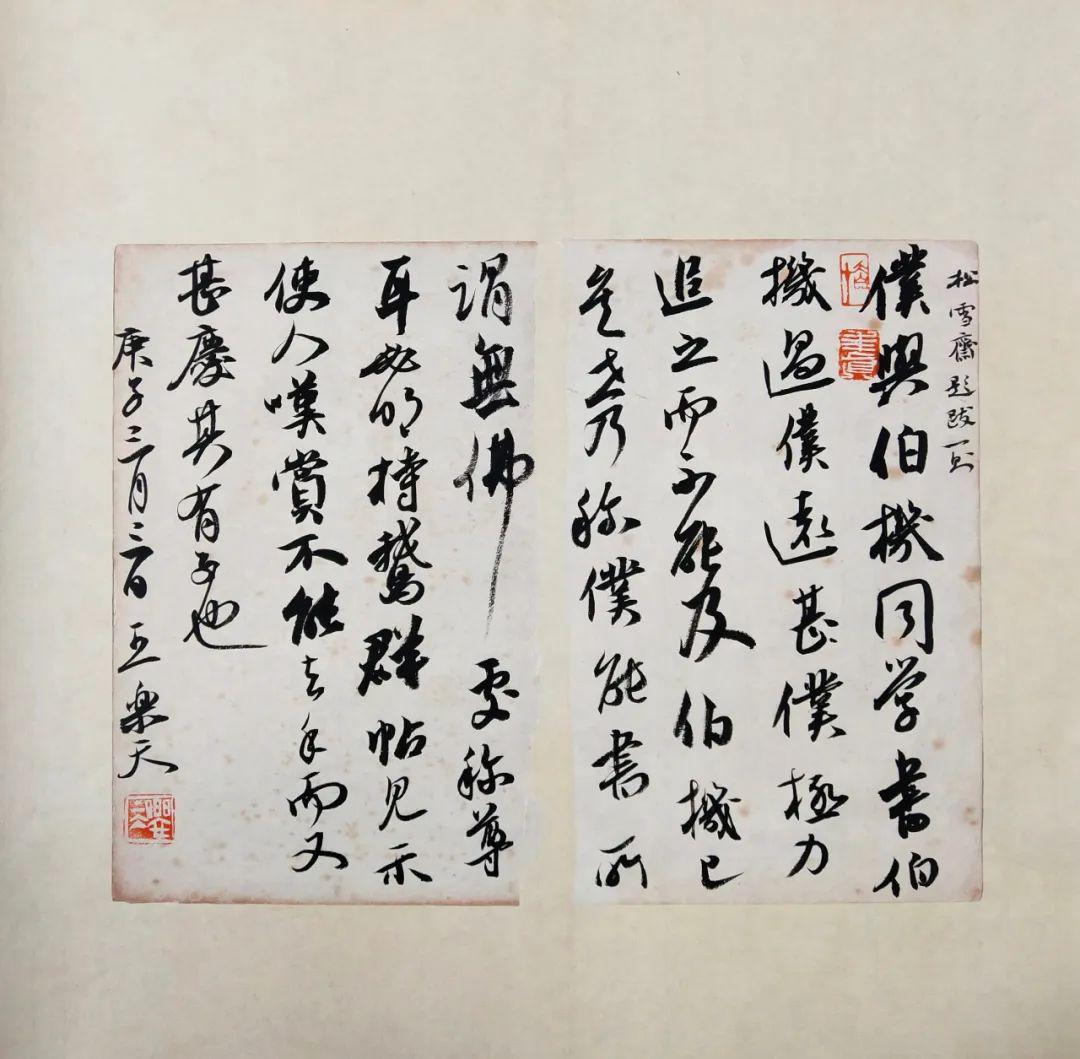 松雪齋題跋一則
僕與伯機同學書伯
機過僕遠甚僕極力
追之而不能及伯機已
矣世乃称僕能書所
謂無佛處称尊
耳明持鵝群帖見示
使人嘆賞不能去手而又
甚慶其有子也
庚子三月日王樂天